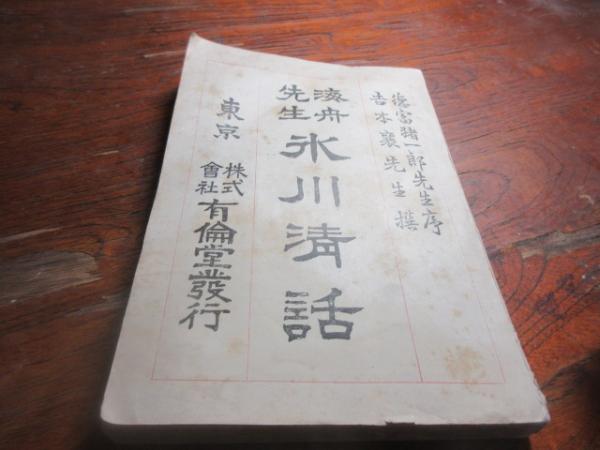 徳富猪一郎先生序
吉本襄先生撰
海舟先生
氷川清話
東京
株式會社
有倫堂發行